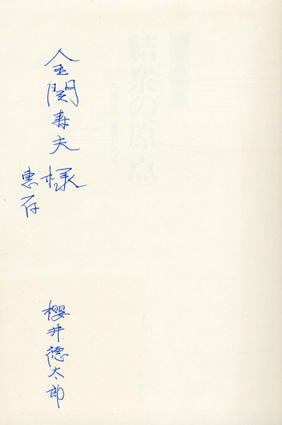 金関寿夫様
恵存
櫻井徳太郎
結衆の原点